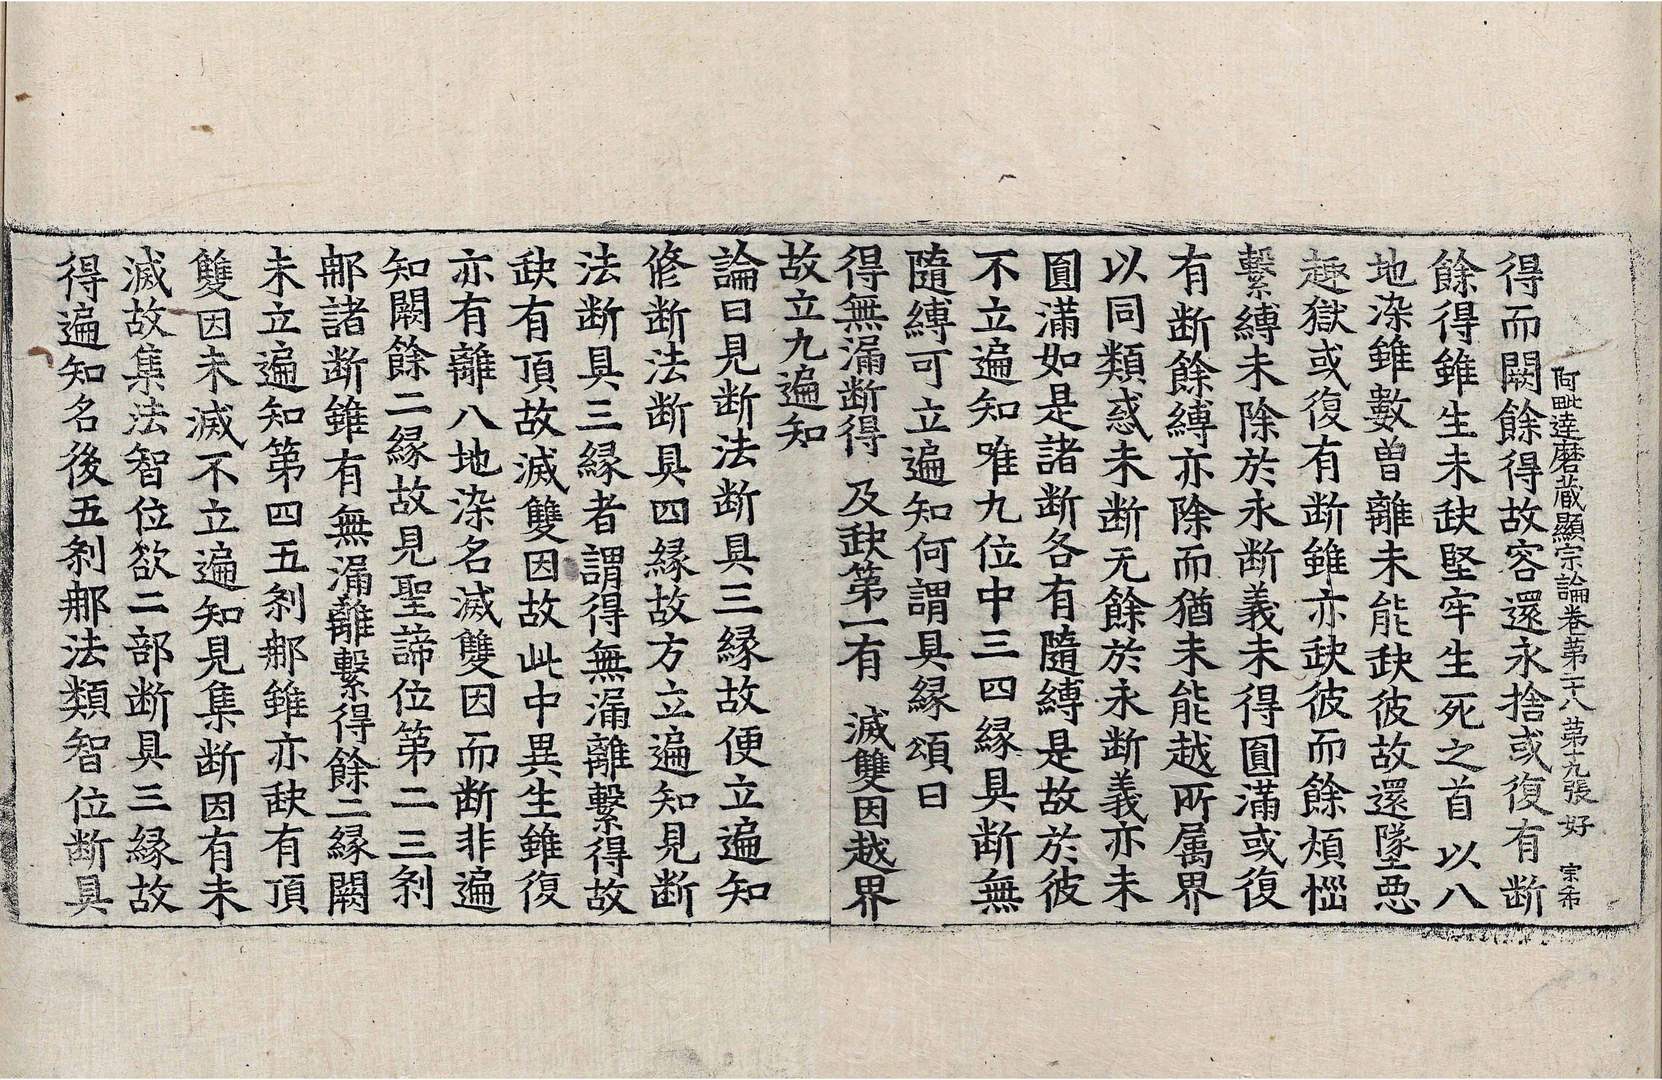 阿毗達磨蔵顯宗論卷第二十八 第十九張 好 宗希
得而闕餘得故容還永捨或復有断
餘得雖生未缺堅牢生死之首以八
地染雖數曽離未能缺彼故還墜惡
趣獄或復有断雖亦缺彼而餘煩惱
繫縛未除於永断義未得圓滿或復
有断餘縛亦除而猶未能越所属界
以同類惑未断无餘於永断義亦未
圓滿如是諸断各有隨縛是故於彼
不立遍知唯九位中三四縁具断無
隨縛可立遍知何謂具縁頌曰
得無漏断得 及缺第一有 滅雙因越界
故立九遍知
論曰見断法断具三縁故便立遍知
修断法断具四縁故方立遍知見断
法断具三縁者謂得無漏離繫得故
缺有頂故滅雙因故此中異生雖復
亦有離八地染名滅雙因而断非遍
知闕餘二縁故見聖諦位第二三刹
那諸断雖有無漏離繫得餘二縁闕
未立遍知第四五刹那雖亦缺有頂
雙因未滅不立遍知見集断因有未
滅故集法智位欲二部断具三縁故
得遍知名後五刹那法類智位断具